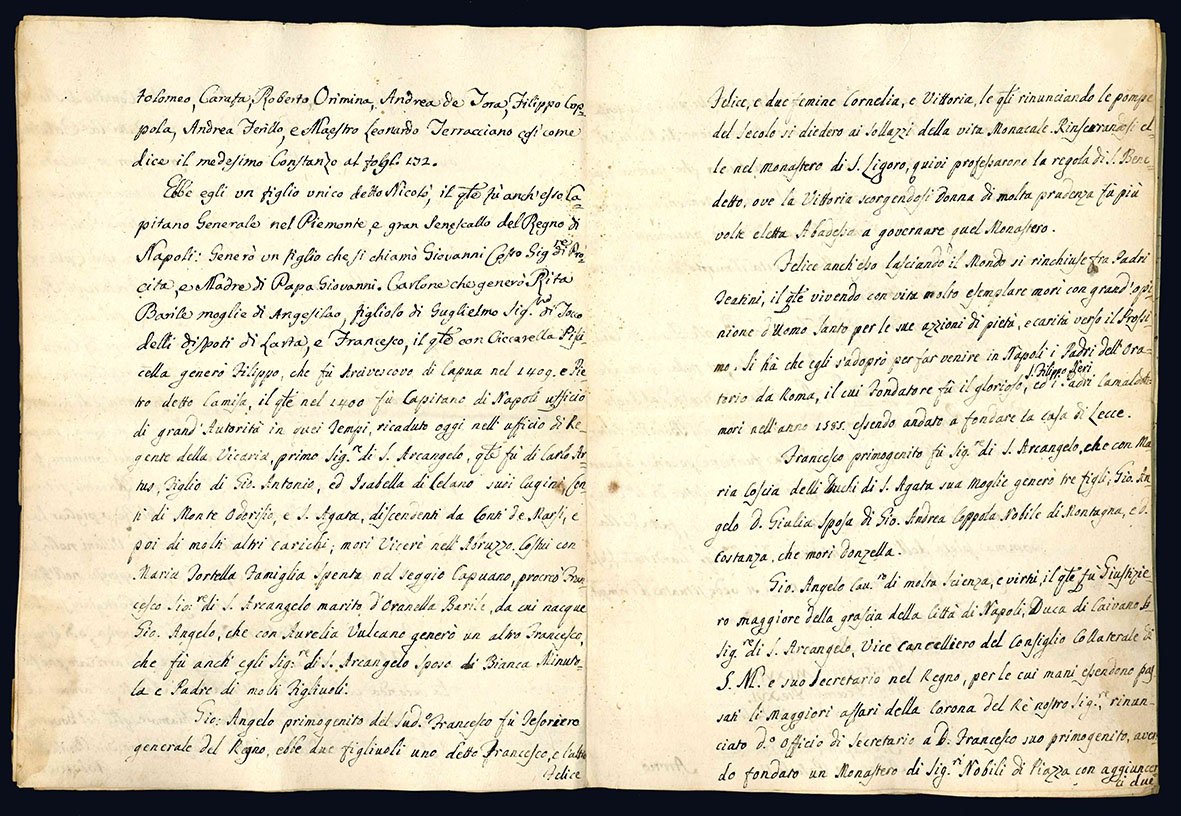 tolomeo, Carafa, Roberto, Orimina, Andrea de Tora, Filippo Cop=
pola, Andrea Ferillo, e Maestro Leonardo Terracciano così come
dice il medesimo Constanzo al fogl. 132.
Ebbe egli un figlio unico detto Nicolò, il qle fù anch'esso Ca=
pitano Generale nel Piemonte, e gran Senescallo del Regno di
Napoli: Generò un figlio che si chiamò Giovanni Sig.re di Pro=
cita, e Madre di Papa Giovanni, Carlone che generò Rita
Barile moglie di Angesilao, figliolo di Guglielmo Sig.re di Toco
delli dispoti di Larta, e Francesco, il qle con Ciccarella Pisci
cella generò Filippo, che fù Arcivescovo di Capua nel 1409. e Pie=
tro detto Camisa, il qle nel 1400 fù Capitano di Napoli ufficio
di grand'Autorità in quei Tempi, ricaduto oggi nell'ufficio di Re=
gente della Vicaria, primo Sig.re di S. Arcangelo, qle fù di Carlo Ar=
tus, Figlio di Gio. Antonio, ed Isabella di Celano suoi Cugini, Con=
ti di Monte Odorisio, e S. Agata, discendenti da Conti de Marsi, e
poi di molti altri carichi; morì Vicerè nell'Abruzzo. Costui con
Maria Tortella Famiglia spenta nel seggio Capuano, procreò Fran=
cesco Sig.re di S. Arcangelo marito d'Oranella Barile, da cui nacque
Gio. Angelo, che con Aurelia Vulcano generò un altro Francesco,
che fù anch'egli Sig.re di S. Arcangelo sposo di Bianca Minuto=
la e Padre di molti Figliuoli.
Gio: Angelo primogenito del Sud.o Francesco fù Tesoriero
generale del Regno, ebbe due figliuoli uno detto Francesco, e l'altro
Felice
Felice, e due femine Cornelia, e Vittoria, le qli rinunciando le pompe
del Secolo si diedero ai sollazzi della vita Monacale Rinserrandosi el=
le nel monastero di S. Ligoro, quivi professarono la regola di S. Bene=
detto, ove la Vittoria scorgendosi Donna di molta prudenza fù più
volte eletta Abadessa a governare quel Monastero.
Felice anch'esso lasciando il Mondo si rinchiuse fra Padri
Teatini, il qle vivendo con vita molto esemplare morì con grand'opi=
nione d'Uomo Santo per le sue azzioni di pietà, e carità verso il Prossi=
mo. Si hà che egli s'adoprò per far venire in Napoli i Padri dell'Ora=
torio da Roma, il cui Fondatore fù il glorioso S. Filippo Neri, ed i Padri Camaldoli
morì nell'anno 1585. essendo andato a fondare la casa di Lecce.
Francesco primogenito fù Sig.re di S. Arcangelo, che con Ma=
ria Coscia delli Duchi di S. Agata sua moglie generò tre figli, Gio. An=
gelo D. Giulia sposa di Gio. Andrea Coppola Nobile di Montagna, e D.
Costanza, che morì donzella.
Gio. Angelo Cav.re di molta scienza, e virtù, il qle fù Giustizie=
ro maggiore della grascia della Città di Napoli, Duca di Caivano
Sig.re di S. Arcangelo, Vice cancelliero del Consiglio Collaterale di
S. M. e suo Secretario nel Regno, per le cui mani essendono pas=
sati li maggiori affari della Corona del Rè nostro Sig.re, rinun=
ciato d.o Officio di Secretario a D. Francesco suo primogenito, aven=
do fondato un Monastero di Sig.re Nobili di Piazza con aggiuncer
ti due